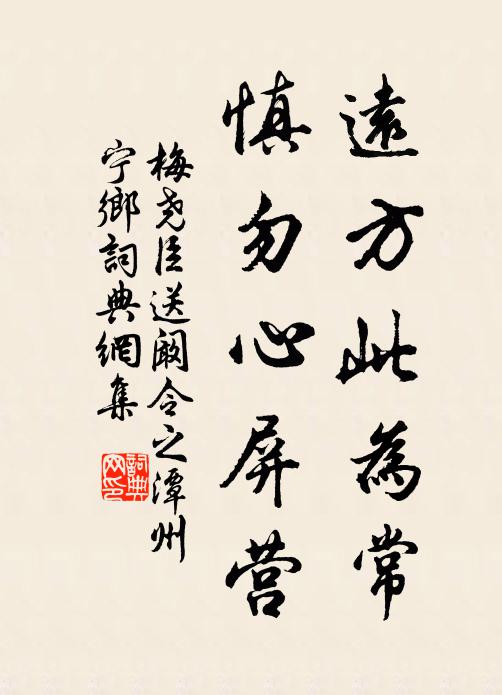 遠方此為常
慎勿心屏营
梅尧臣送阚令之潭州
宁鄉詞典網集
詞典网印